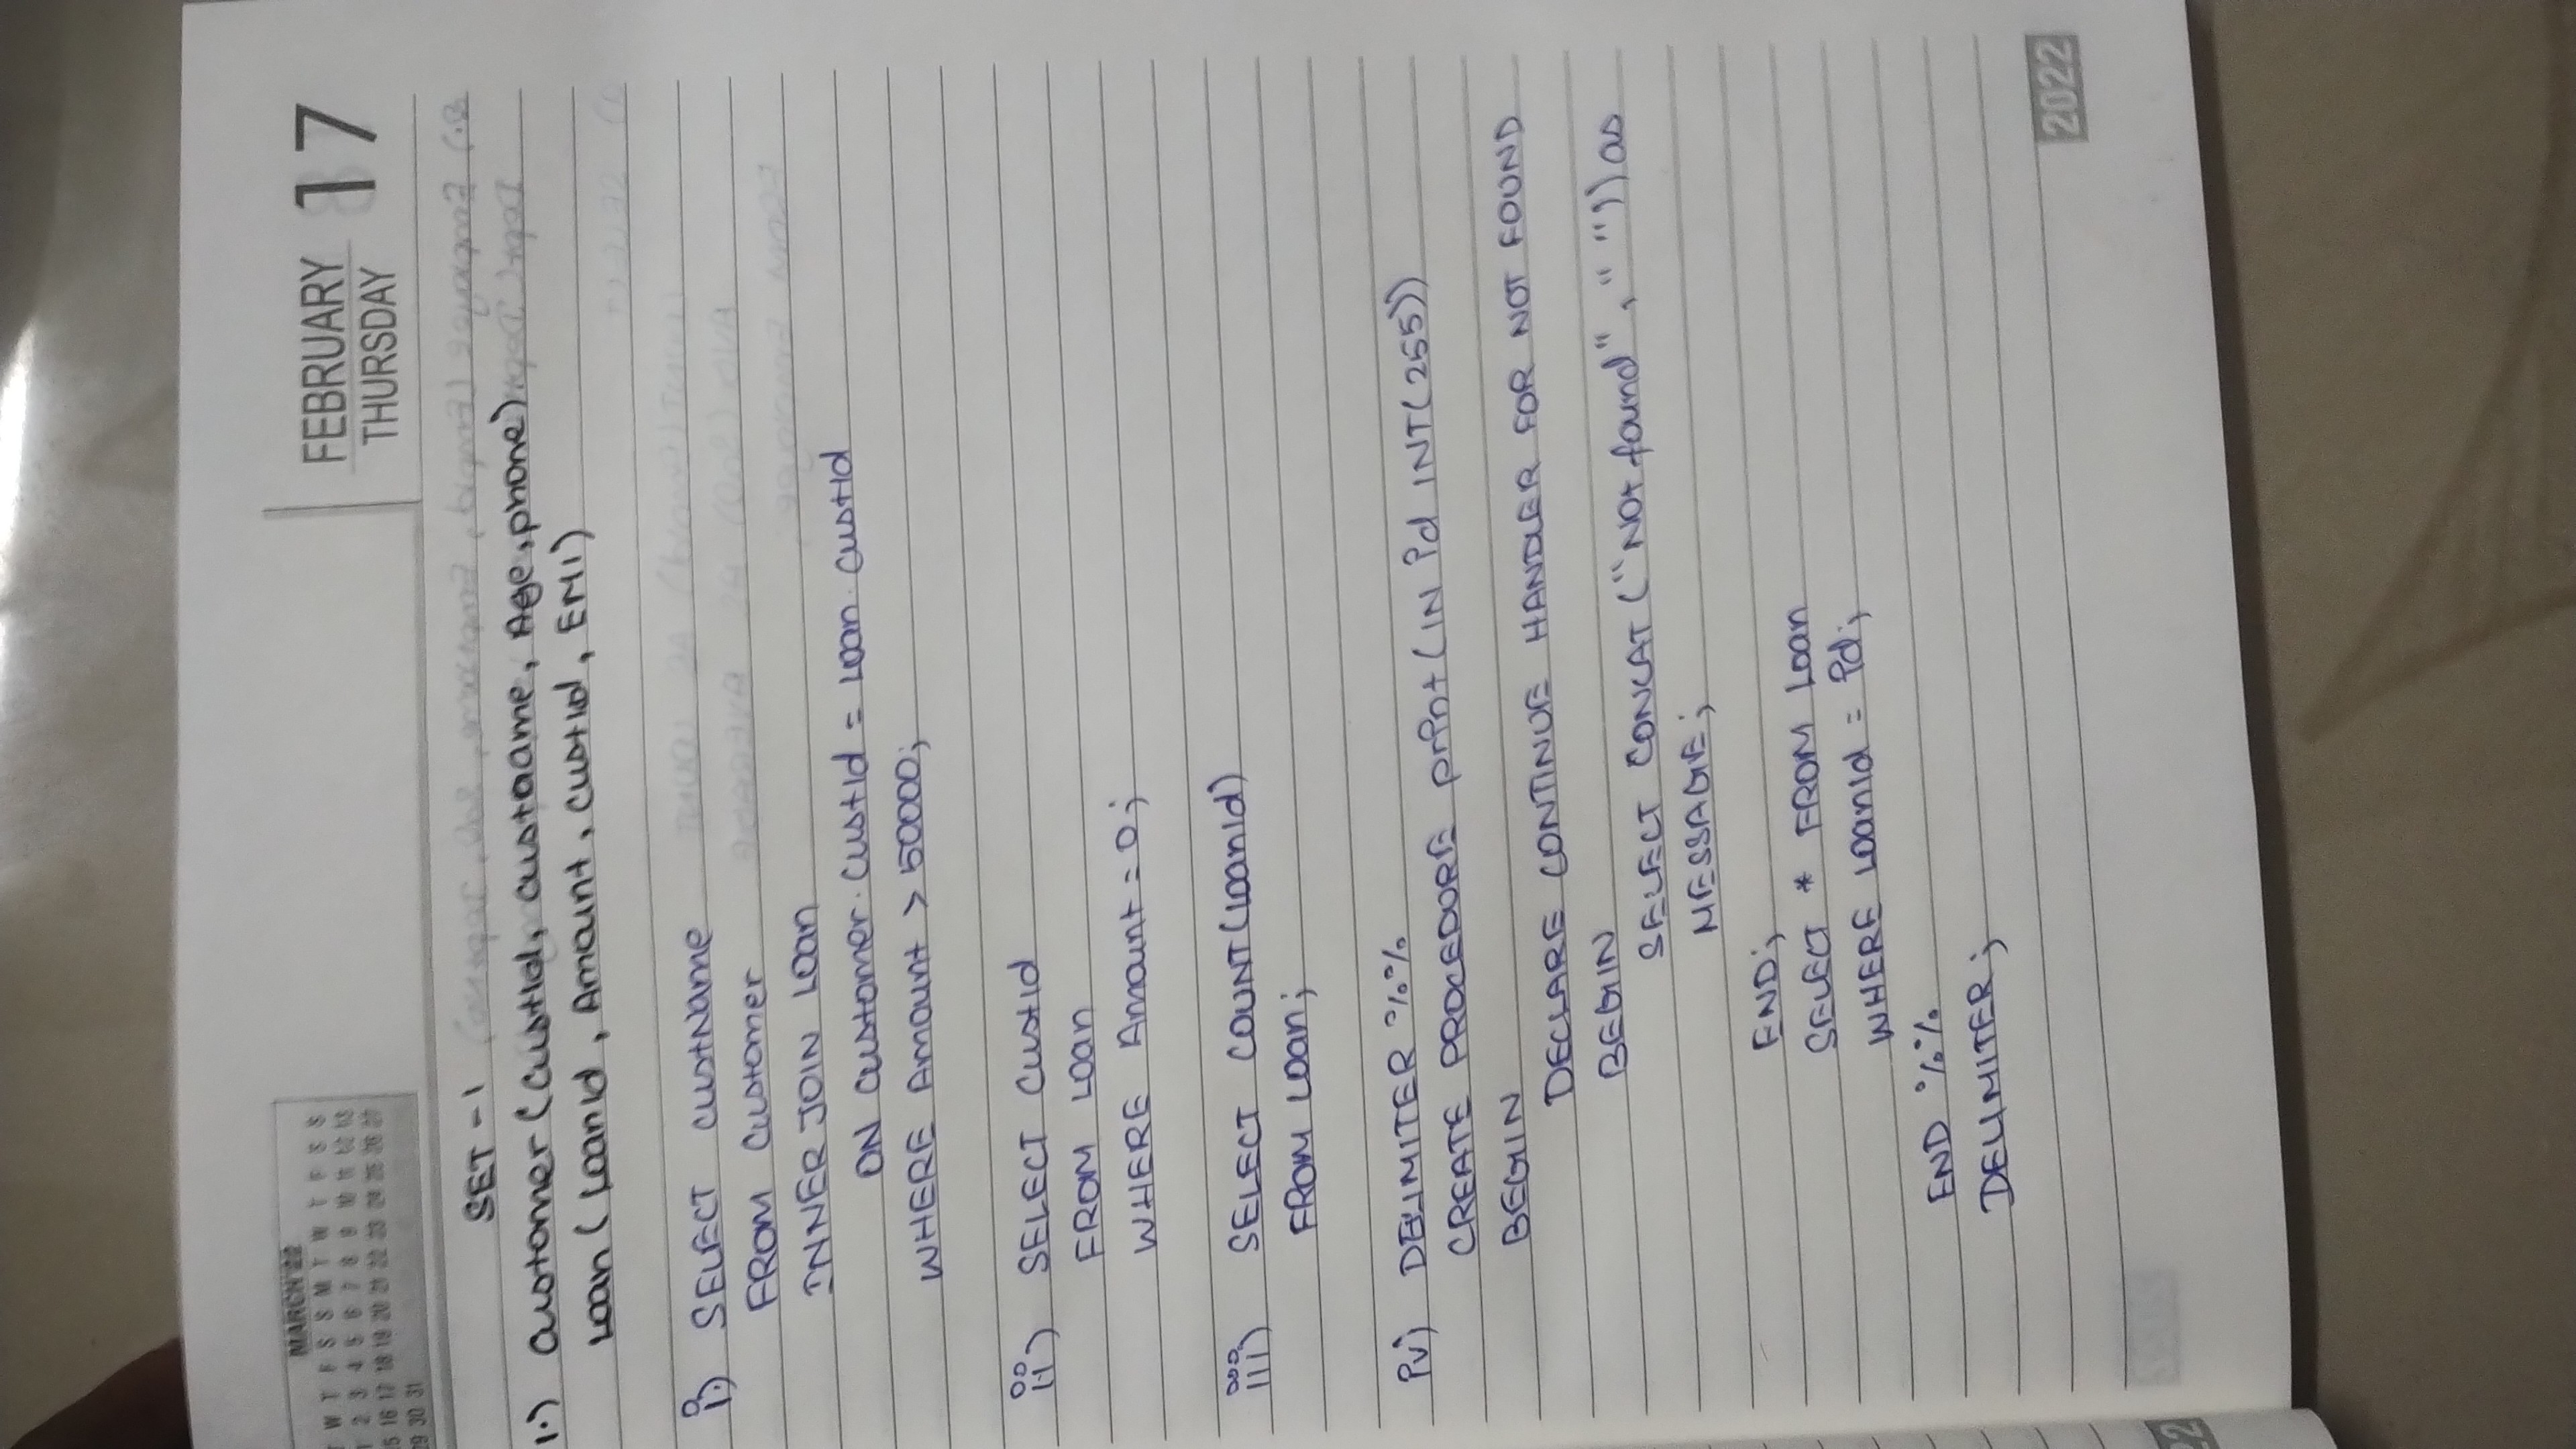 MARCH'22
T W T F S S M T W T F S S
1 2 3 4 5 6 7 8 9 10 11 12 13
15 16 17 18 19 20 21 22 23 24 25 26 27
29 30 31
FEBRUARY 17
THURSDAY
SET - 1
1.) Customer (CustId, custname, Age, phone)
Loan (LoanId, Amount, CustId, EMI)
i) SELECT custName
FROM Customer
INNER JOIN Loan
ON Customer.CustId = Loan.CustId
WHERE Amount > 50000;
ii) SELECT CustId
FROM Loan
WHERE Amount = 0;
iii) SELECT COUNT(LoanId)
FROM Loan;
iv) DELIMITER %%
CREATE PROCEDURE print (IN id INT(255))
BEGIN
DECLARE CONTINUE HANDLER FOR NOT FOUND
BEGIN
SELECT CONCAT ("Not found", " ")) as
MESSAGE;
END;
SELECT * FROM Loan
WHERE LoanId = id;
END %%
DELIMITER;
2022
22